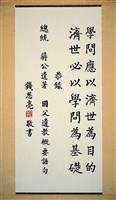 學問應以濟世為目的
濟世必以學問為基礎
恭錄
總統 蔣公遺著 國父遺教概要語句
錢思亮 敬書